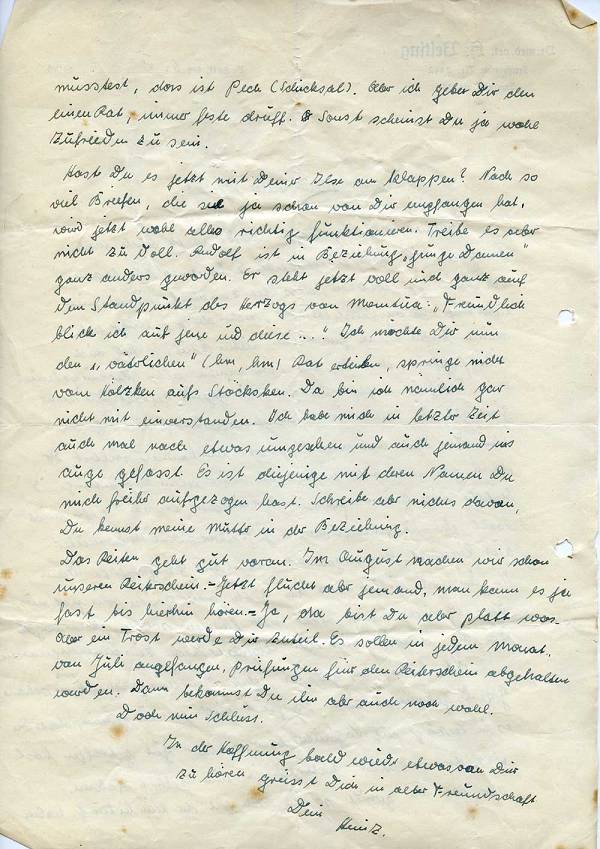 müsstest, dass ist Pech (Schicksal). Aber ich geber Dir den
einen Rat, immer feste druff. Sonst scheinst Du ja wohl
zufrieden zu sein.
Hast Du es jetzt mit Deiner Ilse am klappen? Nach so
viel Briefen, die sie ja schon von Dir empfangen hat,
wird jetzt wohl alles richtig funktionieren. Treibe es aber
nicht zu doll. Rudolf ist in Beziehung „junge Damen"
ganz anders geworden. Er steht jetzt voll und ganz auf
dem Standpunkt des Herzogs von Mantua: „Freundlich
blick ich auf jene und diese ...." Ich möchte Dir nun
den „väterlichen" (hm, hm) Rat erteilen, springe nicht
vom Hölzken aufs Stöcksken. Da bin ich nämlich gar
nicht mit einverstanden. Ich habe mich in letzter Zeit
auch mal nach etwas umgesehen und auch jemand ins
Auge gefasst. Es ist diejenige mit deren Namen Du
mich früher aufgezogen hast. Schreibe aber nichts davon,
Du kennst meine Mutter in der Beziehung.
Das Reiten geht gut voran. Im August machen wir schon
unseren Reiterschein.- Jetzt flucht aber jemand, man kann es ja
fast bis hierhin hören.- Ja, da bist Du aber platt was.
Aber ein Trost werde Dir zuteil. Es sollen in jedem Monat,
von Juli angefangen, Prüfungen für den Reiterschein abgehalten
werden. Dann bekommst Du ihn aber auch noch wohl.
Doch nun Schluss.
In der Hoffnung bald wieder etwas von Dir
zu hören grüsst Dich in alter Freundschaft
Dein
Heinz.